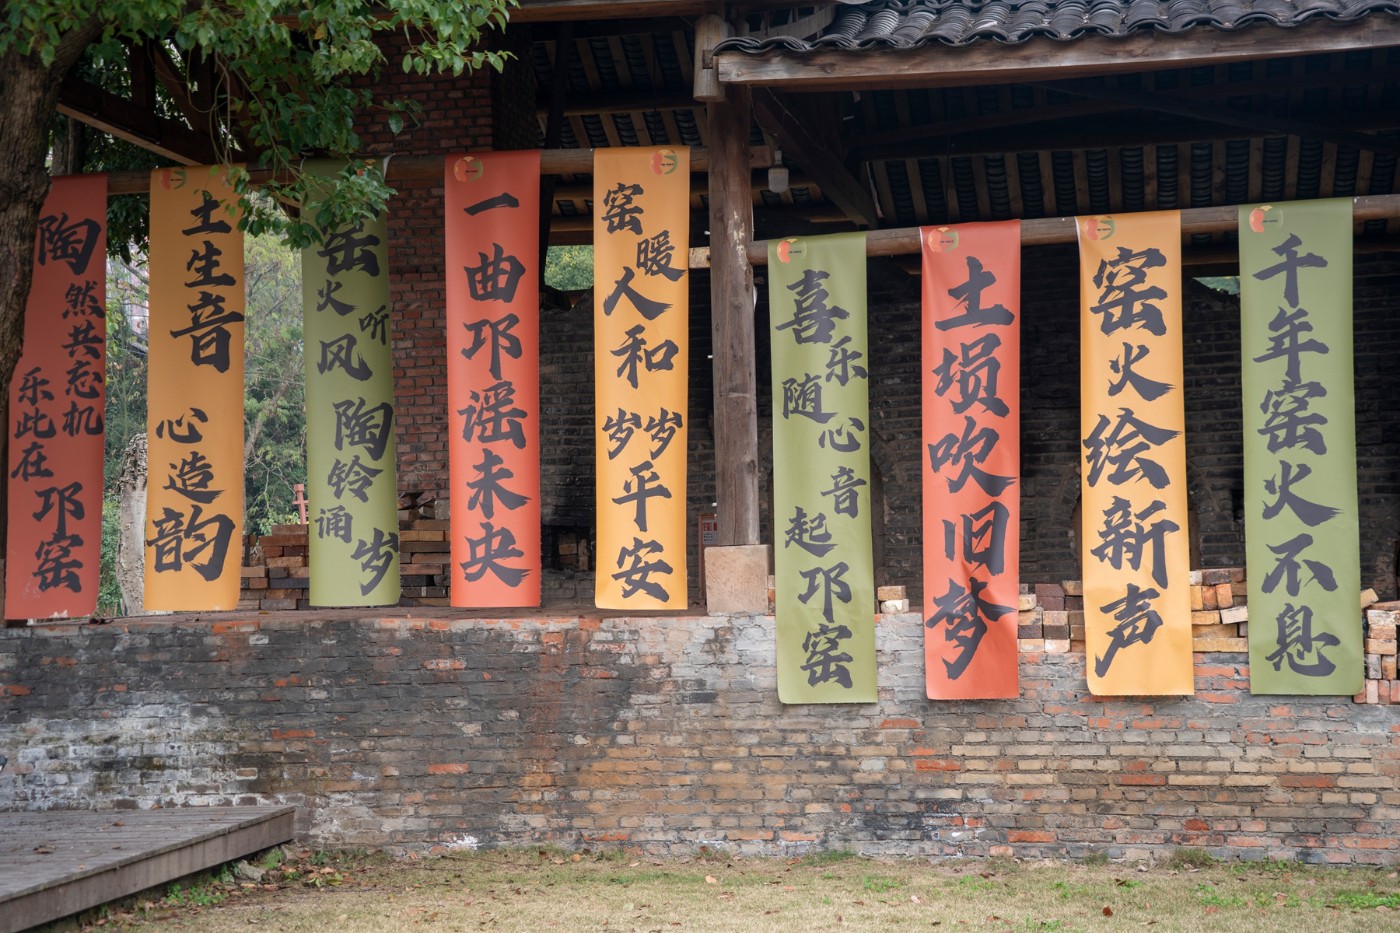 陶然共忘机乐此在邛窑
土生音心造韵
窑火听风陶铃诵岁
一曲邛谣未央
窑暖人和岁岁平安
喜乐随心音起邛窑
土埙吹旧梦
窑火绘新声
千年窑火不息